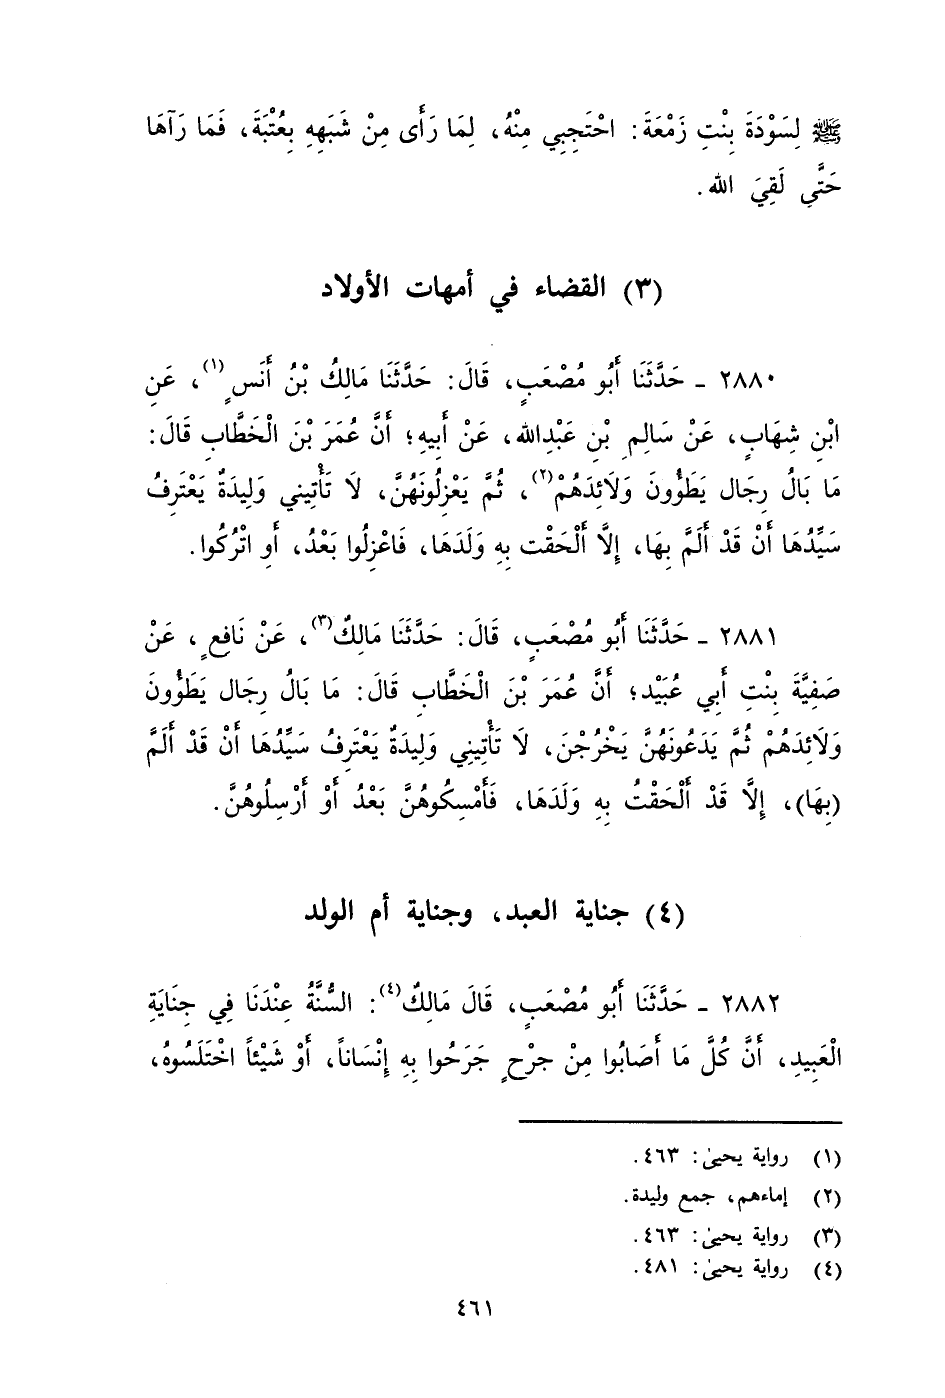 ﷺ لِسَوْدَةَ بِنْتِ زَمْعَةَ: احْتَجِبِي مِنْهُ، لِمَا رَأَى مِنْ شَبَهِهِ بِعُتْبَةَ، فَمَا رَآهَا
حَتَّى لَقِيَ الله.
(٣) القضاء في أمهات الأولاد
٢٨٨٠ - حَدَّثَنَا أَبُو مُصْعَبٍ، قَالَ: حَدَّثَنَا مَالِكُ بْنُ أَنَسٍ(١)، عَنِ
ابْنِ شِهَابٍ، عَنْ سَالِمِ بْنِ عَبْدِالله، عَنْ أَبِيهِ؛ أَنَّ عُمَرَ بْنَ الْخَطَّابِ قَالَ:
مَا بَالُ رِجَالٍ يَطَؤُونَ وَلاَئِدَهُمْ(٢)، ثُمَّ يَعْزِلُونَهُنَّ، لاَ تَأْتِينِي وَلِيدَةٌ يَعْتَرِفُ
سَيِّدُهَا أَنْ قَدْ أَلَمَّ بِهَا، إِلاَّ أَلْحَقْت بِهِ وَلَدَهَا، فَاعْزِلُوا بَعْدُ، أَوِ اتْرُكُوا.
٢٨٨١ - حَدَّثَنَا أَبُو مُصْعَبٍ، قَالَ: حَدَّثَنَا مَالِكٌ(٣)، عَنْ نَافِعٍ، عَنْ
صَفِيَّةَ بِنْتِ أَبِي عُبَيْدٍ؛ أَنَّ عُمَرَ بْنَ الْخَطَّابِ قَالَ: مَا بَالُ رِجَالٍ يَطَؤُونَ
وَلاَئِدَهُمْ ثُمَّ يَدَعُونَهُنَّ يَخْرُجْنَ، لاَ تَأْتِينِي وَلِيدَةٌ يَعْتَرِفُ سَيِّدُهَا أَنْ قَدْ أَلَمَّ
(بِهَا)، إِلاَّ قَدْ أَلْحَقْتُ بِهِ وَلَدَهَا، فَأَمْسِكُوهُنَّ بَعْدُ أَوْ أَرْسِلُوهُنَّ.
(٤) جناية العبد، وجناية أم الولد
٢٨٨٢ - حَدَّثَنَا أَبُو مُصْعَبٍ، قَالَ مَالِكٌ(٤): السُّنَّةُ عِنْدَنَا فِي جِنَايَةِ
الْعَبِيدِ، أَنَّ كُلَّ مَا أَصَابُوا مِنْ جرْحٍ جَرَحُوا بِهِ إِنْسَاناً، أَوْ شَيْئاً اخْتَلَسُوهُ،
(١) رواية يحيىٰ: ٤٦٣.
(٢) إماءهم، جمع وليدة.
(٣) رواية يحيىٰ: ٤٦٣.
(٤) رواية يحيىٰ: ٤٨١.
٤٦١